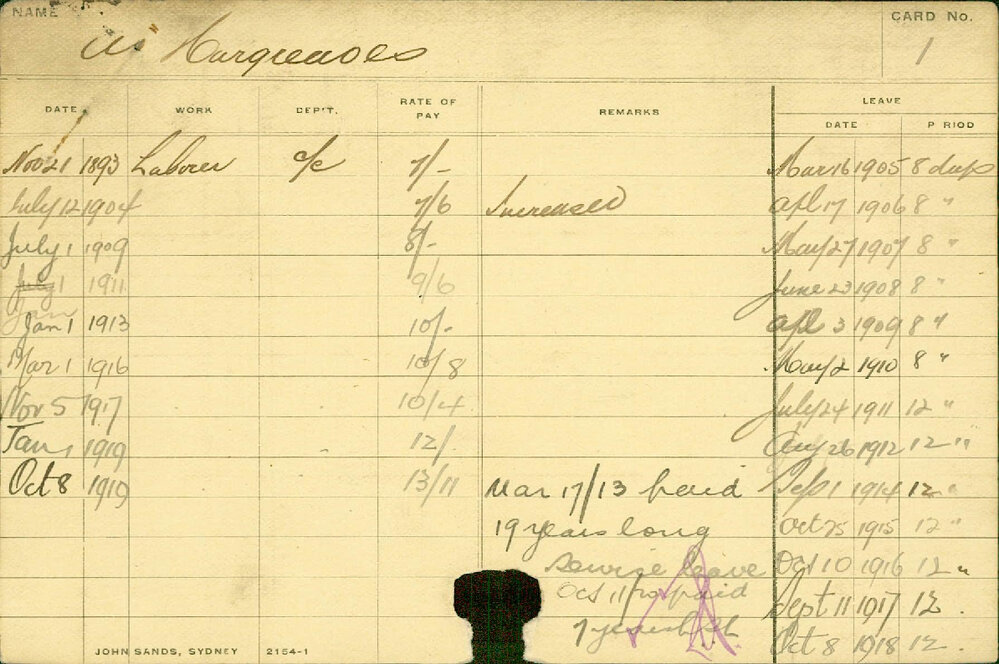 NAME CARD No.
Hargreaves 1
LEAVE
DATE WORK DEP'T. RATE OF PAY REMARKS DATE P RIOD
Nov 21 1893 Laborer o/c 7/- Mar 16 1905 8 days
July 12 1904 7/6 Increased Apl 17 1906 8 "
July 1 1909 8/- May 27 1907 8 "
July 1 1911 9/6 June 23 1908 8 "
Jan
Jan 1 1913 10/- Apl 3 1909 8 "
Mar 1 1916 10/8 May 2 1910 8 "
Nov 5 1917 10/4 July 24 1911 12 "
Jan 1 1919 12/- Aug 26 1912 12 "
Oct 8 1919 13/11 Mar 17/13 paid Sep 1 1914 12 "
19 years long Oct 25 1915 12 "
Service leave Oct 10 1916 12 "
Oct paid Sept 11 1917 12 .
7 years Oct 8 1918 12 .
JOHN SANDS, SYDNEY 2154-1